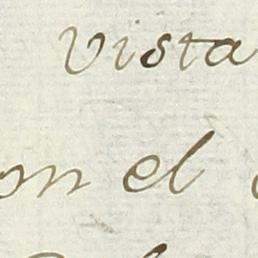 vista
on el